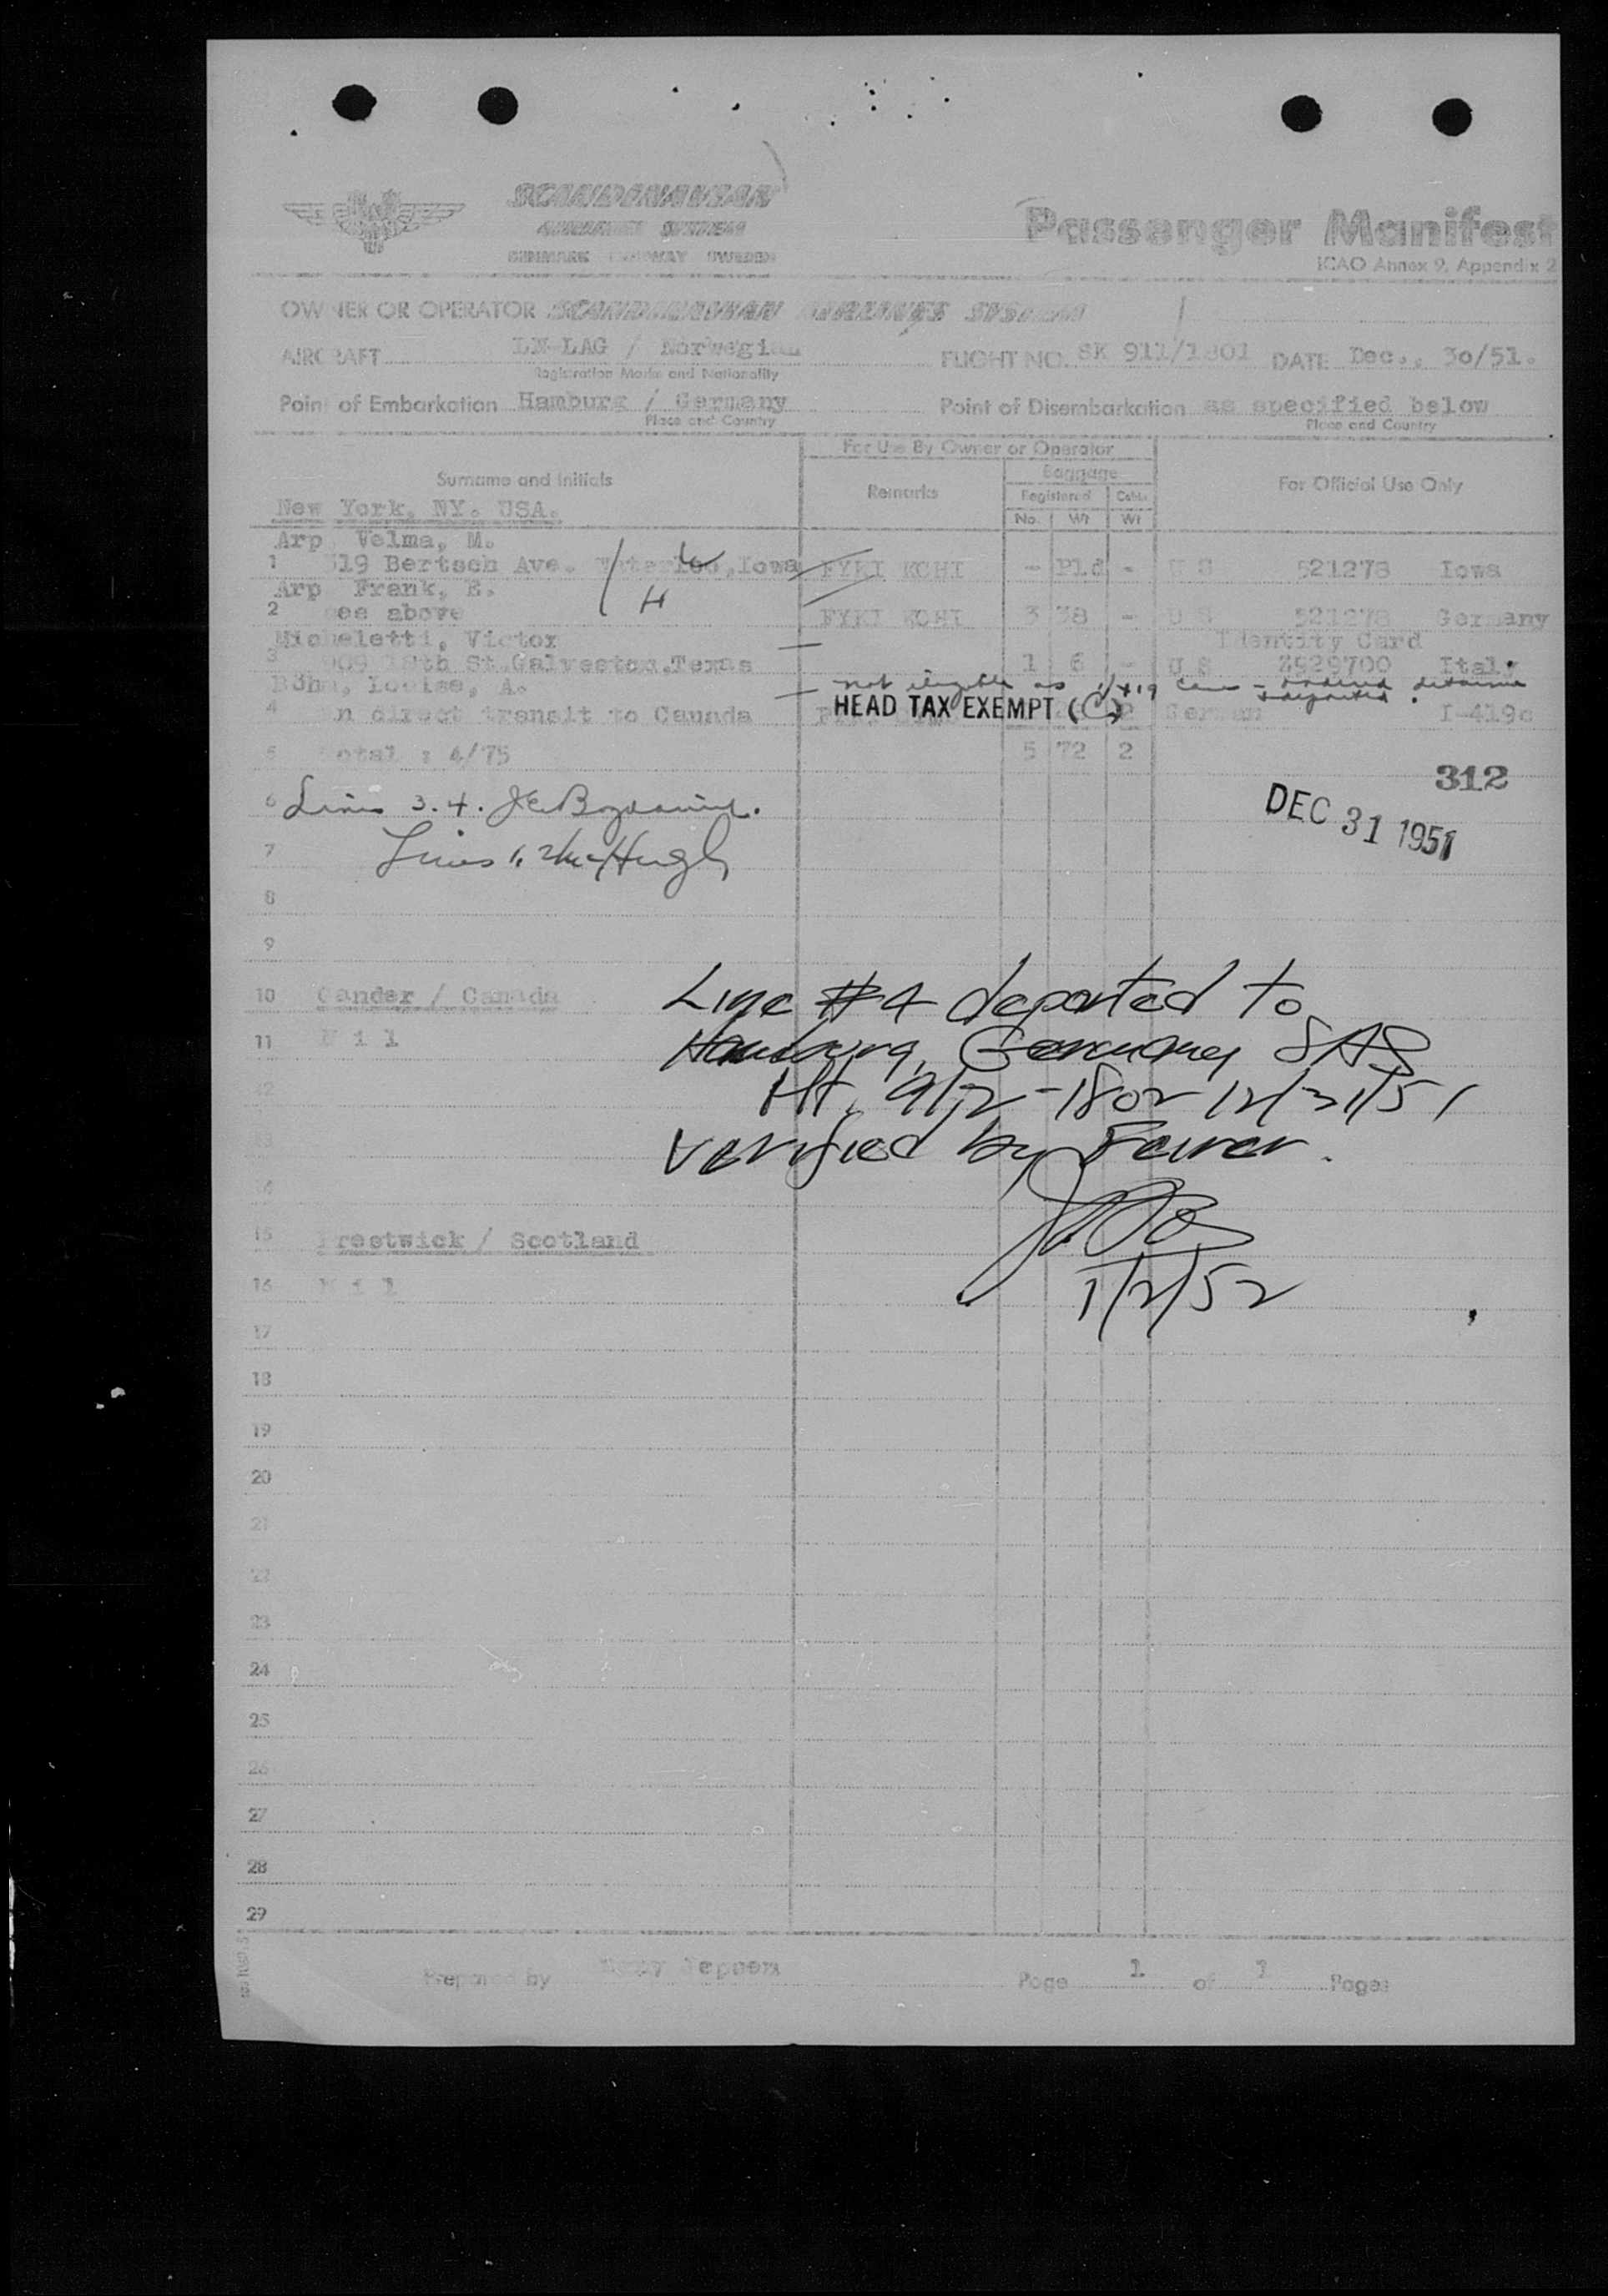 SCANDINAVIAN
AIRLINES SYSTEM
DENMARK NORWAY SWEDEN
Passenger Manifest
ICAO Annex 9, Appendix 2
OWNER OR OPERATOR SCANDINAVIAN AIRLINES SYSTEM
AIRCRAFT LN-LAG / Norwegian FLIGHT NO. SK 911/1801 DATE Dec., 30/51.
Registration Marks and Nationality
Point of Embarkation Hamburg / Germany Point of Disembarkation as specified below
Place and Country Place and Country
For Use By Owner or Operator
Surname and Initials Remarks Baggage For Official Use Only
Registered Cabin
No. Wt Wt
New York, NY. USA.
Arp Velma, M.
1 319 Bertsch Ave. Waterloo, Iowa FYKI KOHI - Pld - U S 521278 Iowa
W
Arp Frank, E.
H
2 see above FYKI KOHI 3 38 - U S 521278 Germany
Micheletti, Victor Identity Card
3 909 18th St. Galveston.Texas 1 6 - U S Z929700 Italy
Böhm, Louise, A. not eligible as ordered detained
& deported.
4 in direct transit to Canada HEAD TAX EXEMPT (C) 2 German I-419c
5 Total : 4/75 5 72 2
312
DEC 31 1951
6 Lines 3. 4.
7 Lines 1, 2 McHugh
8
9
10 Gander / Canada
11 N i l
Line #4 deported to
Hamburg, Germany SAS
Flt. 912-1802 12/31/51
verified by
12
13
14
15 Prestwick / Scotland
16 N i l
1/2/52
17
18
19
20
21
22
23
24
25
26
27
28
29
Prepared by Jepsen Page 1 of 1 Pages